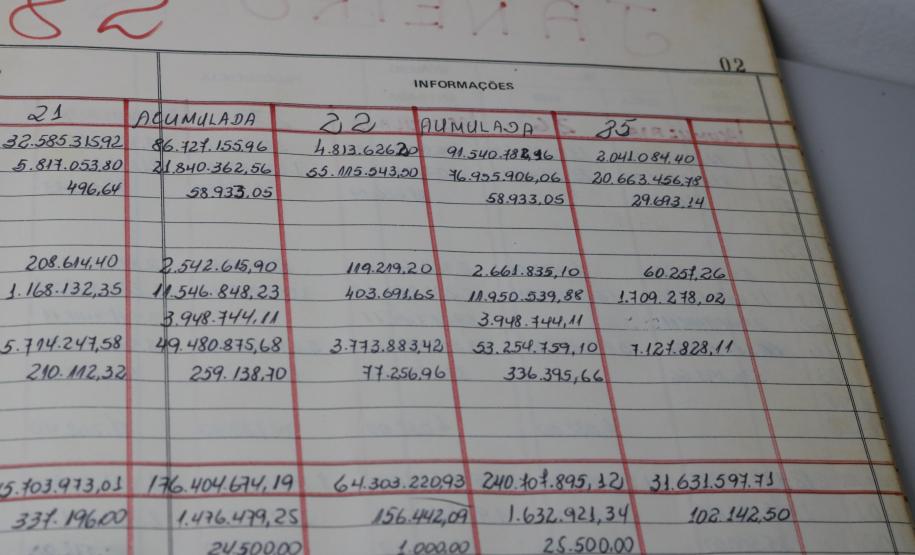 82 JANEIRO
02
INFORMAÇÕES
21 ACUMULADA 22 AUMULADA 25
32.585.315,92 86.727.155,96 4.813.626,20 91.540.782,16 2.041.084,40
5.817.053,80 21.840.362,56 55.115.543,50 76.955.906,06 20.663.456,78
496,64 58.933,05 58.933,05 29.693,14
208.614,40 2.542.615,90 119.219,20 2.661.835,10 60.257,26
1.168.132,35 11.546.848,23 403.691,65 11.950.539,88 1.709.278,02
3.948.744,11 3.948.744,11
5.714.247,58 49.480.875,68 3.773.883,42 53.254.759,10 7.127.828,11
210.112,32 259.138,70 77.256,96 336.395,66
5.703.973,01 176.404.674,19 64.303.220,93 240.707.895,12 31.631.597,71
337.196,00 1.476.479,25 156.442,09 1.632.921,34 102.142,50
24.500,00 1.000,00 25.500,00